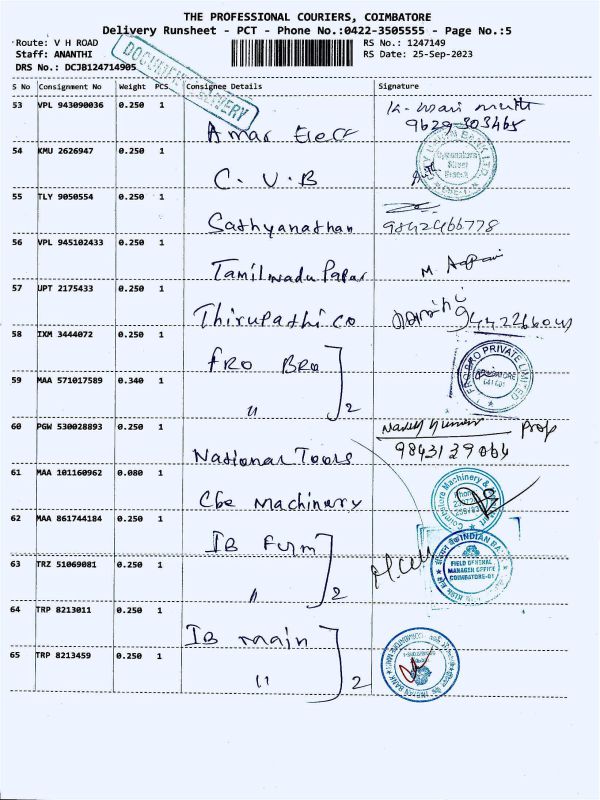 THE PROFESSIONAL COURIERS, COIMBATORE
Delivery Runsheet - PCT - Phone No.:0422-3505555 - Page No.:5
Route: V H ROAD RS No.: 1247149
Staff: ANANTHI RS Date: 25-Sep-2023
DRS No.: DCJB124714905
DOCUMENT DELIVERY
S No Consignment No Weight PCS Consignee Details Signature
53 VPL 943090036 0.250 1
Amar Elect
9629303465
54 KMU 2626947 0.250 1
C.U.B
CITY UNION BANK LTD.
55 TLY 9050554 0.250 1
Sathyanathan 9842466778
56 VPL 945102433 0.250 1
Tamilnadu Papar M.
57 UPT 2175433 0.250 1
Thirupathi Co
58 IXM 3444072 0.250 1
FRO Bro
PRIVATE LIMITED
COIMBATORE
641 001
59 MAA 571017589 0.340 1
" 2
60 PGW 530028893 0.250 1
Prop
National Tools 9843139064
61 MAA 101160962 0.080 1
Cbe Machinery
Coimbatore Machinery &
62 MAA 861744184 0.250 1
IB Furm
INDIAN BANK
FIELD GENERAL
MANAGER OFFICE
COIMBATORE-01
63 TRZ 51069081 0.250 1
" 2
64 TRP 8213011 0.250 1
IB main
65 TRP 8213459 0.250 1
" 2
INDIAN BANK